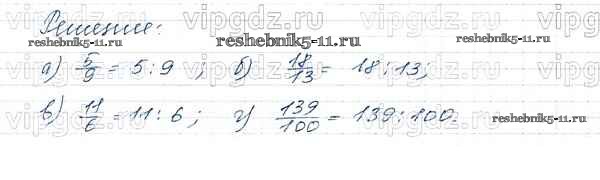 Решение:
reshebnik5-11.ru
reshebnik5-11.ru
vipgdz.ru vipgdz.ru vipgdz.ru
а) 5/9 = 5:9 ; б) 18/13 = 18:13;
в) 11/6 = 11:6 ; г) 139/100 = 139:100.
reshebnik5-11.ru
vipgdz.ru vipgdz.ru vipgdz.ru